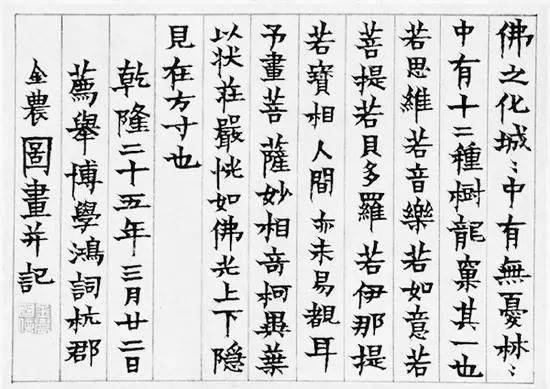 佛之化城〻中有無憂林〻
中有十二種樹龍窠其一也
若思維若音樂若如意若
菩提若貝多羅若伊那提
若寶相人間亦未易覩耳
予畫菩薩妙相竒柯異葉
以狀莊嚴恍如佛光上下隱
見在方寸也
乾隆二十五年三月廿二日
薦舉博學鴻詞杭郡
金農圖畫并記